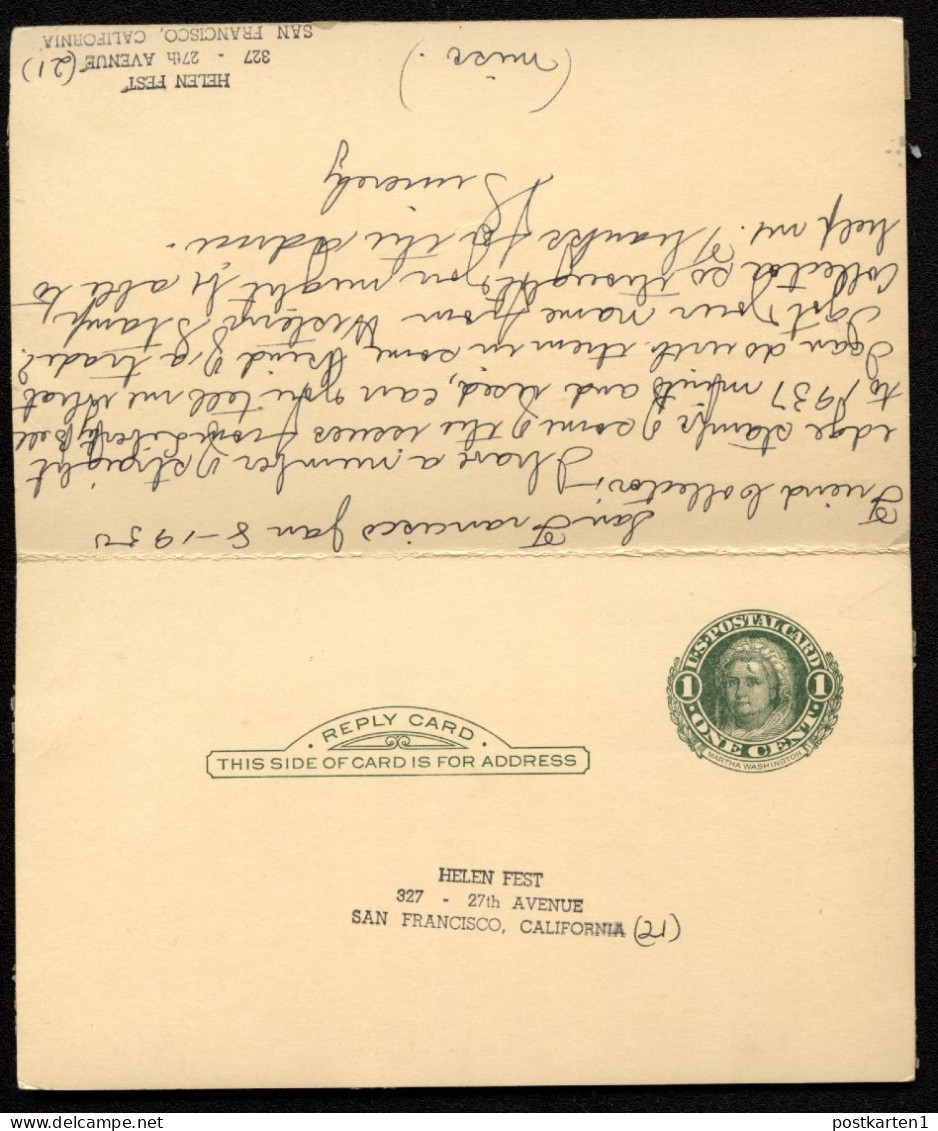 San Francisco Jan 8-1950
Friend Collector:-
I have a number of straight
edge stamps of some of the issues from Liberty Bell
to 1937 mint and used, can you tell me what
I can do with them in some kind of a trade?
I got your name from Western Stamp
Collector so thought you might be able to
help me. Thanks for the advice.
Sincerely
(miss.)
HELEN FEST
327 - 27th AVENUE (21)
SAN FRANCISCO, CALIFORNIA
U.S. POSTAL CARD
1 1
ONE CENT
MARTHA WASHINGTON
REPLY CARD
THIS SIDE OF CARD IS FOR ADDRESS
HELEN FEST
327 - 27th AVENUE
SAN FRANCISCO, CALIFORNIA (21)
postkarten1